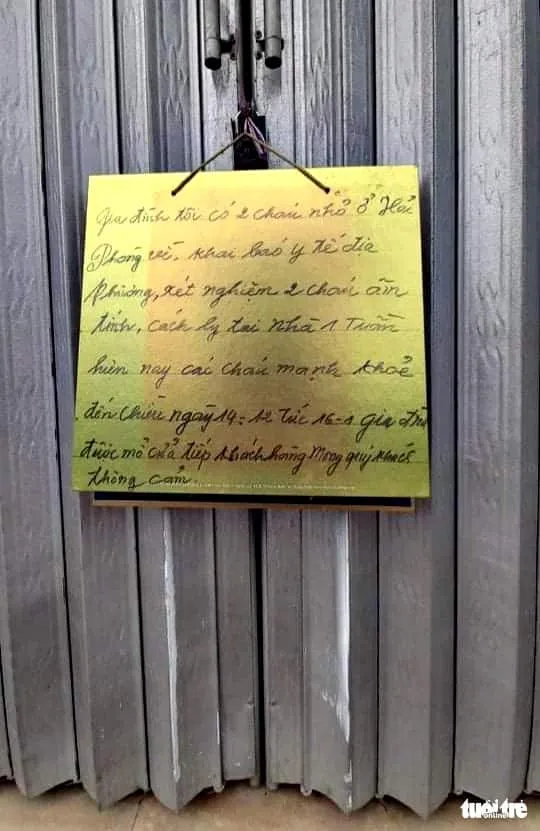 Gia đình tôi có 2 cháu nhỏ ở Hải
Phòng về, khai báo y tế địa
phương, xét nghiệm 2 cháu âm
tính, cách ly tại nhà 1 Tuần
hiện nay các cháu mạnh khoẻ
đến chiều ngày 14-12 tức 16-1 gia đìn
được mở cửa tiếp khách hàng Mong quý khách
thông cảm.
tuổi trẻ
online